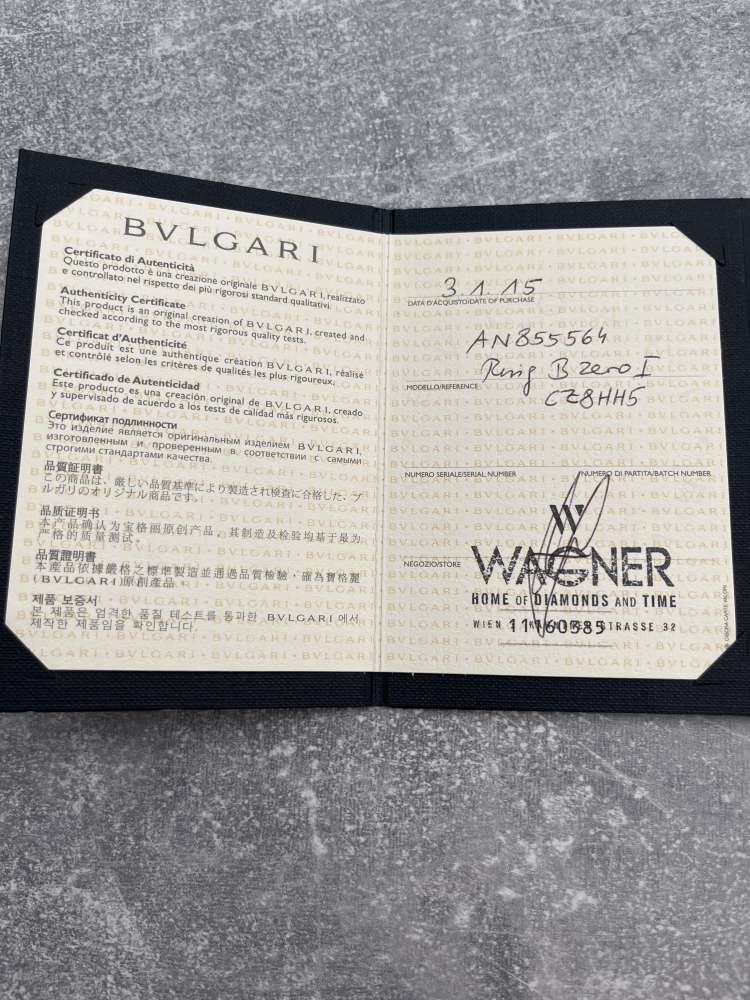 BVLGARI
Certificato di Autenticità
Questo prodotto è una creazione originale BVLGARI, realizzato
e controllato nel rispetto dei più rigorosi standard qualitativi.
Authenticity Certificate
This product is an original creation of BVLGARI, created and
checked according to the most rigorous quality tests.
Certificat d'Authenticité
Ce produit est une authentique création BVLGARI, réalisé
et contrôlé selon les critères de qualités les plus rigoureux.
Certificado de Autenticidad
Este producto es una creación original de BVLGARI, creado
y supervisado de acuerdo a los tests de calidad más rigurosos.
Сертификат подлинности
Это изделие является оригинальным изделием BVLGARI,
изготовленным и проверенным в соответствии с самыми
строгими стандартами качества.
品質証明書
この商品は、厳しい品質基準により製造され検査に合格した、ブ
ルガリのオリジナル商品です。
品质证明书
本产品确认为宝格丽原创产品，其制造及检验均基于最为
严格的质量测试。
品質證明書
本產品依據嚴格之標準製造並通過品質檢驗，確為寶格麗
(BVLGARI)原創產品。
제품 보증서
본 제품은 엄격한 품질 테스트를 통과한 BVLGARI에서
제작한 제품임을 확인합니다.
3.1.15
DATA D'ACQUISTO/DATE OF PURCHASE
AN855564
Ring B zero I
MODELLO/REFERENCE
CZ8HH5
NUMERO SERIALE/SERIAL NUMBER
NUMERO DI PARTITA/BATCH NUMBER
NEGOZIO/STORE
W
WAGNER
HOME OF DIAMONDS AND TIME
WIEN 1 STRASSE 32
11760585